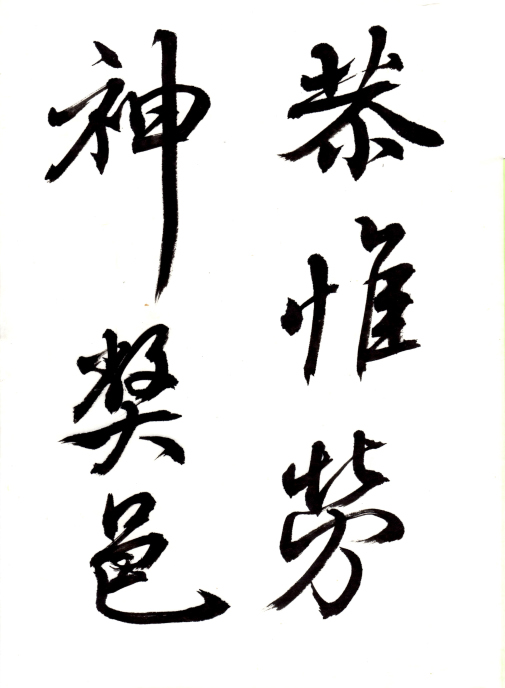 恭惟勞
神弊邑